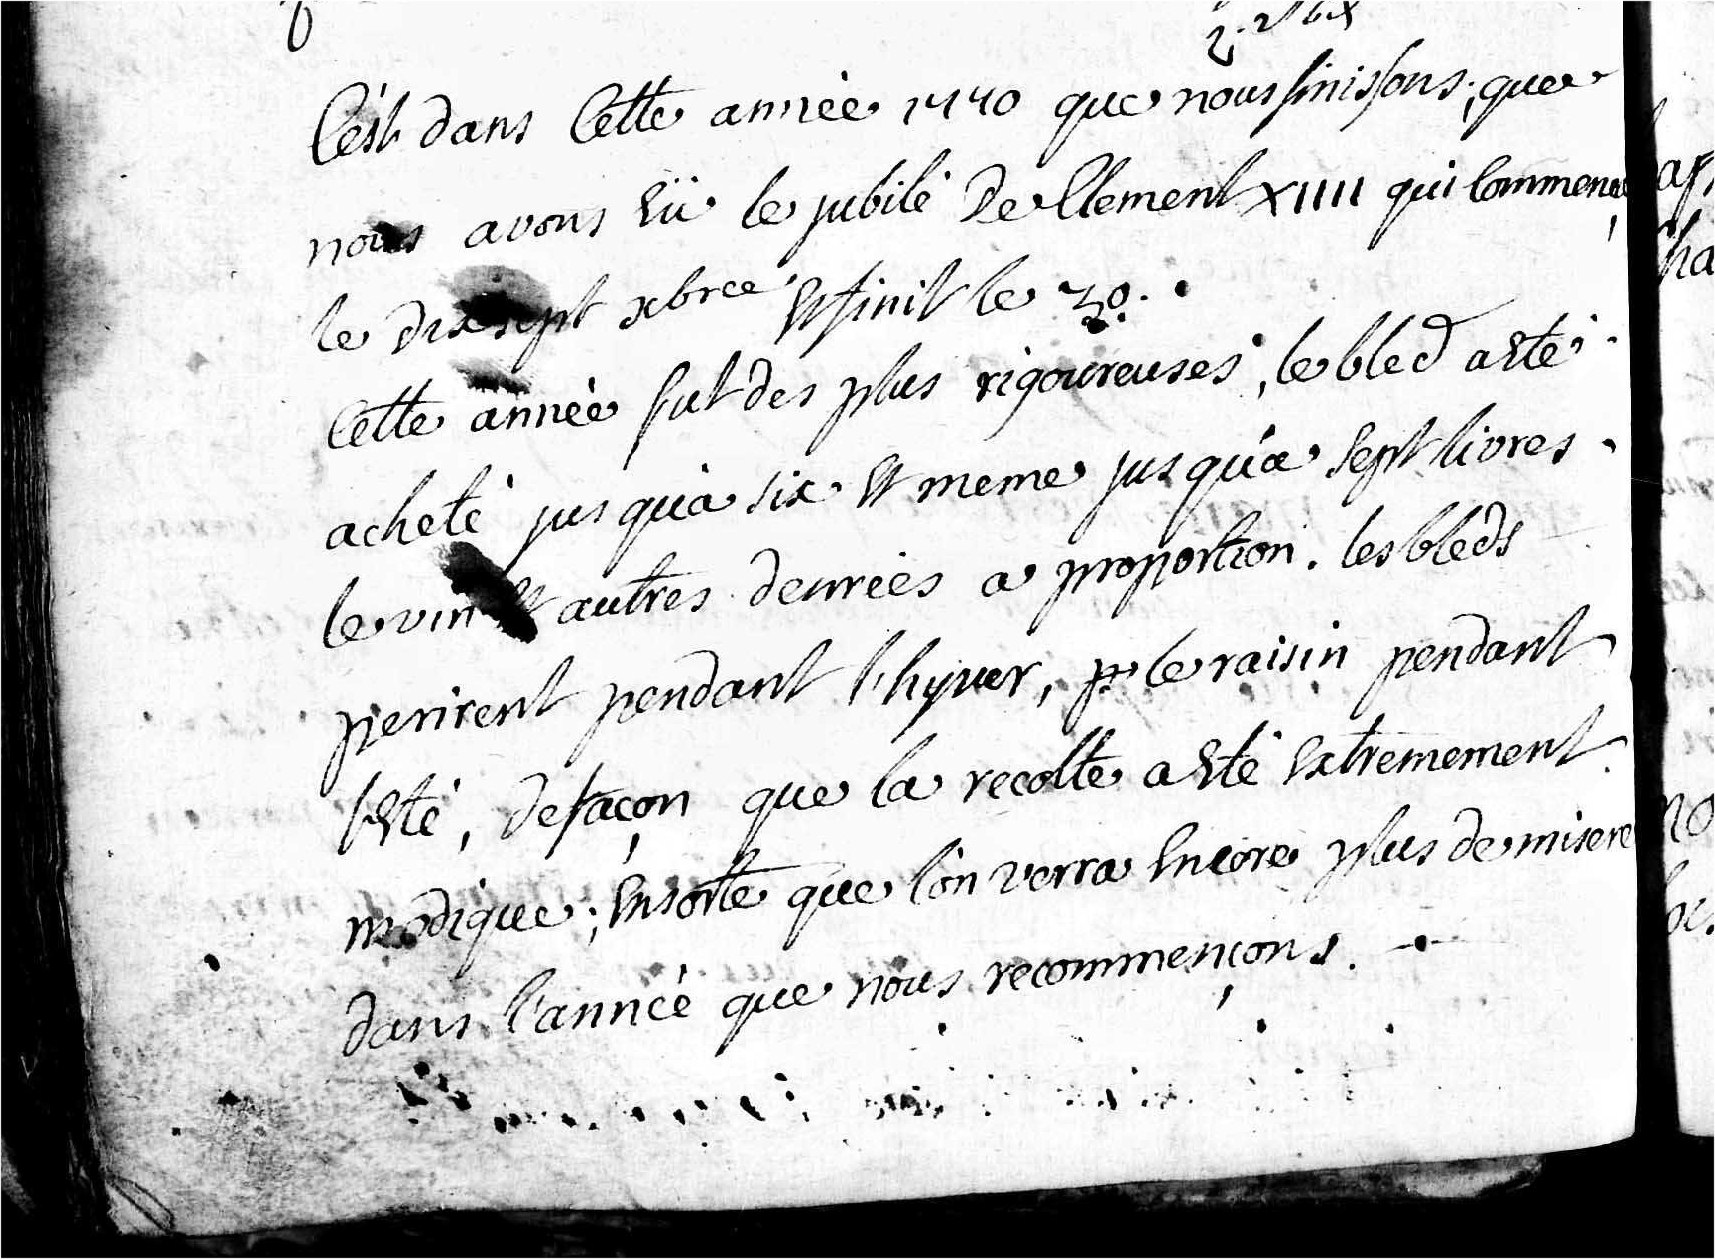 C'est dans Cette année 1770 que nous finissons; que
nous avons Eü le jubilé De Clement XIIII qui Commença
le dixsept xbre Et finit le 30.
Cette année fut des plus rigoureuses, le bled a Eté
acheté jusqu'à six Et meme jusqu'a sept livres
le vin Et autres denrées a proportion. les bleds
perirent pendant l'hyver, le raisin pendant
l'Eté, de façon que la recolte a Eté Extremement
modique; Ensorte que l'on verra Encore plus de misere
dans l'année que nous recommençons.